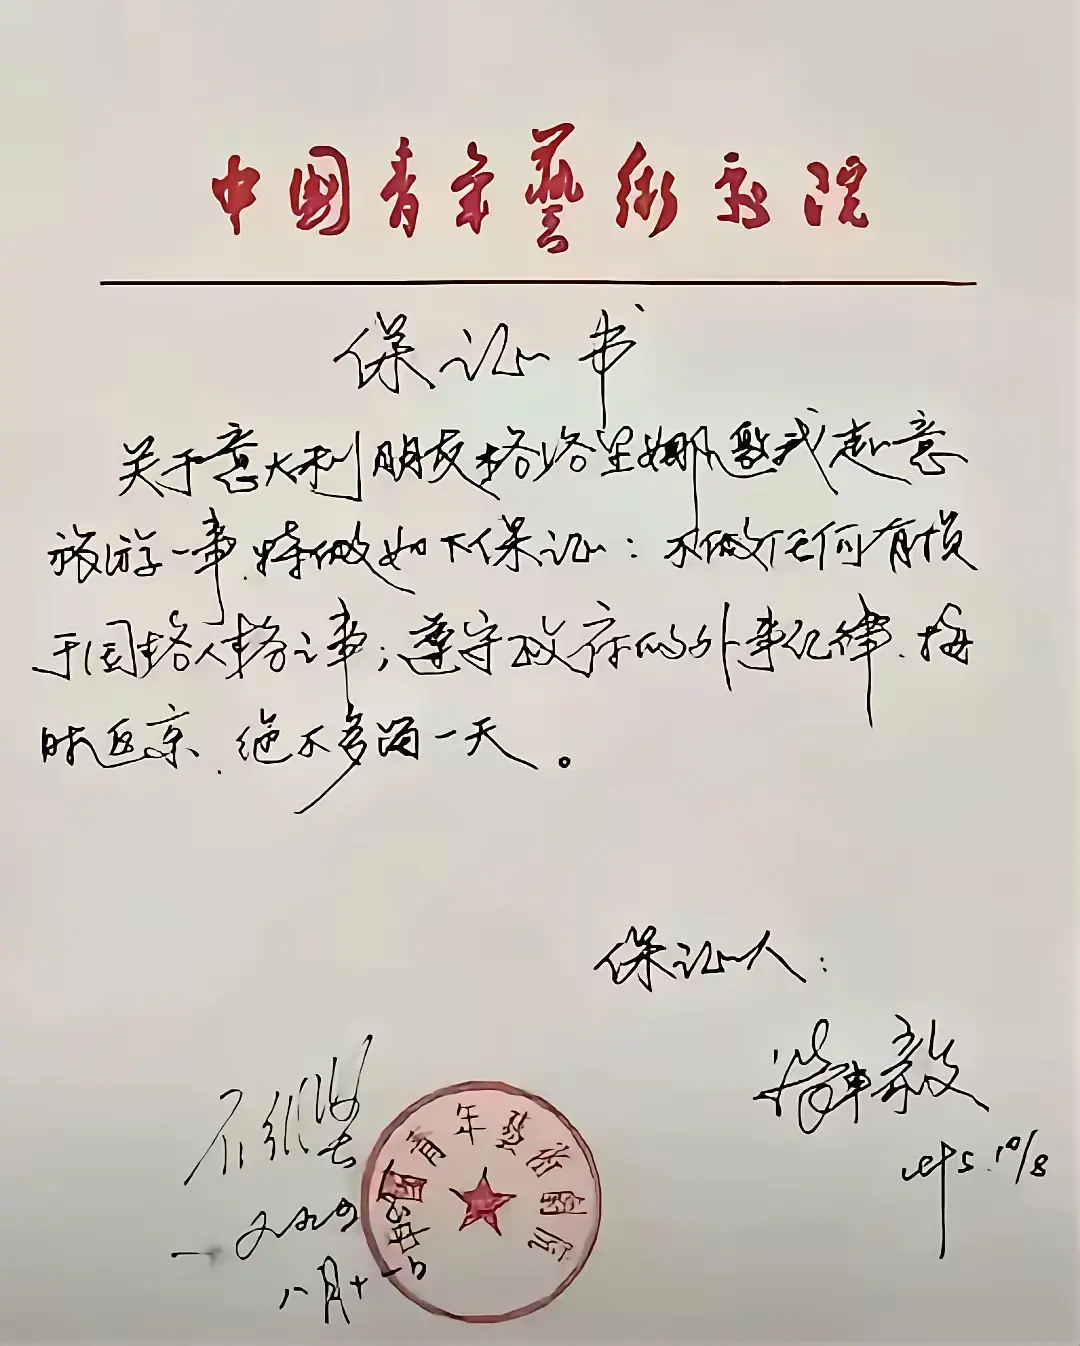 中国青年藝術剧院
保证书
关于意大利朋友格洛里娜邀我赴意
旅游一事，特做如下保证：不做任何有损
于国格人格之事；遵守政府的外事纪律，按
时返京，绝不多留一天。
保证人：
石维坚
一九九四
八月十一日
中國青年藝術劇院